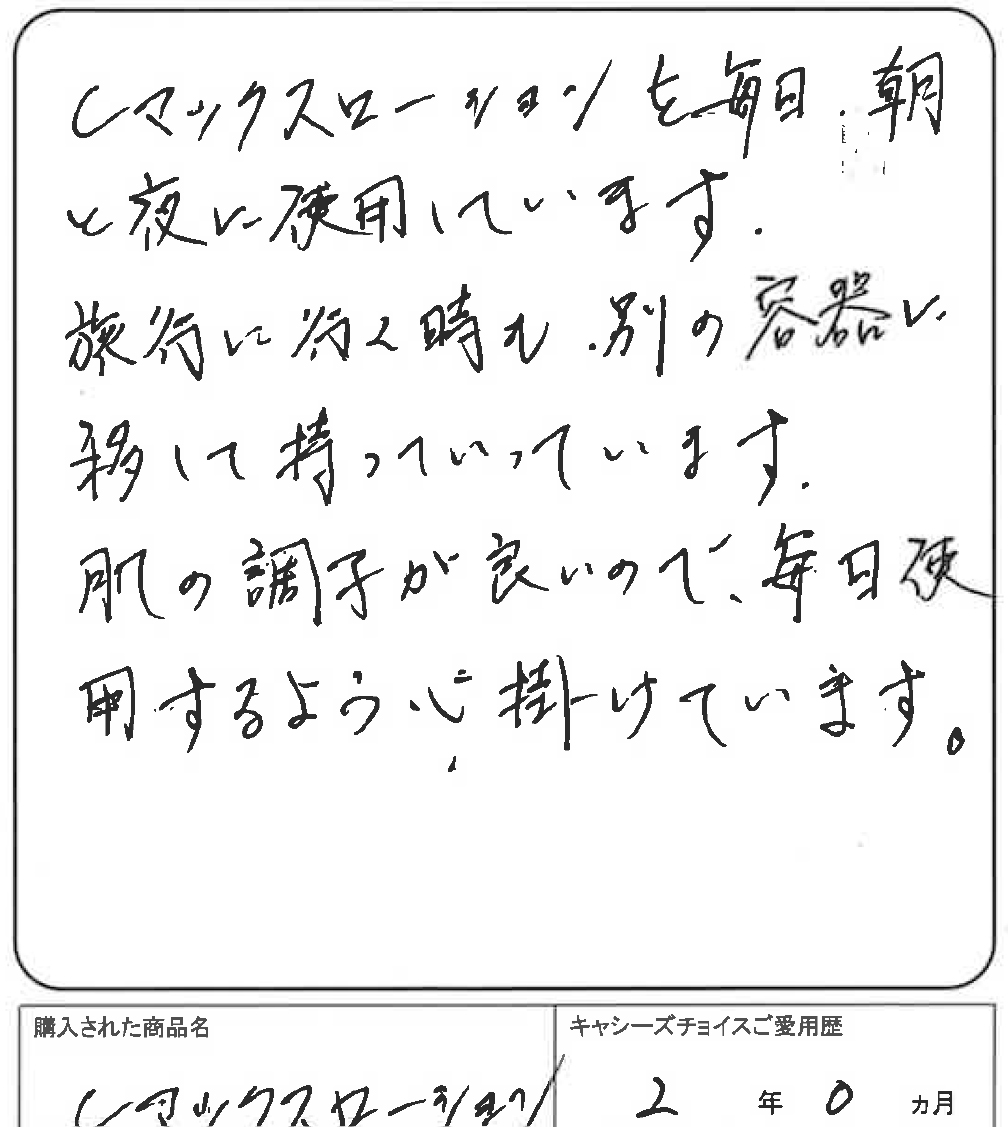 Cマックスローションを毎日、朝
と夜に使用しています.
旅行に行く時も、別の容器に
移して持っていっています.
肌の調子が良いので、毎日使
用するよう心掛けています。
購入された商品名
キャシーズチョイスご愛用歴
Cマックスローション
2年0ヵ月